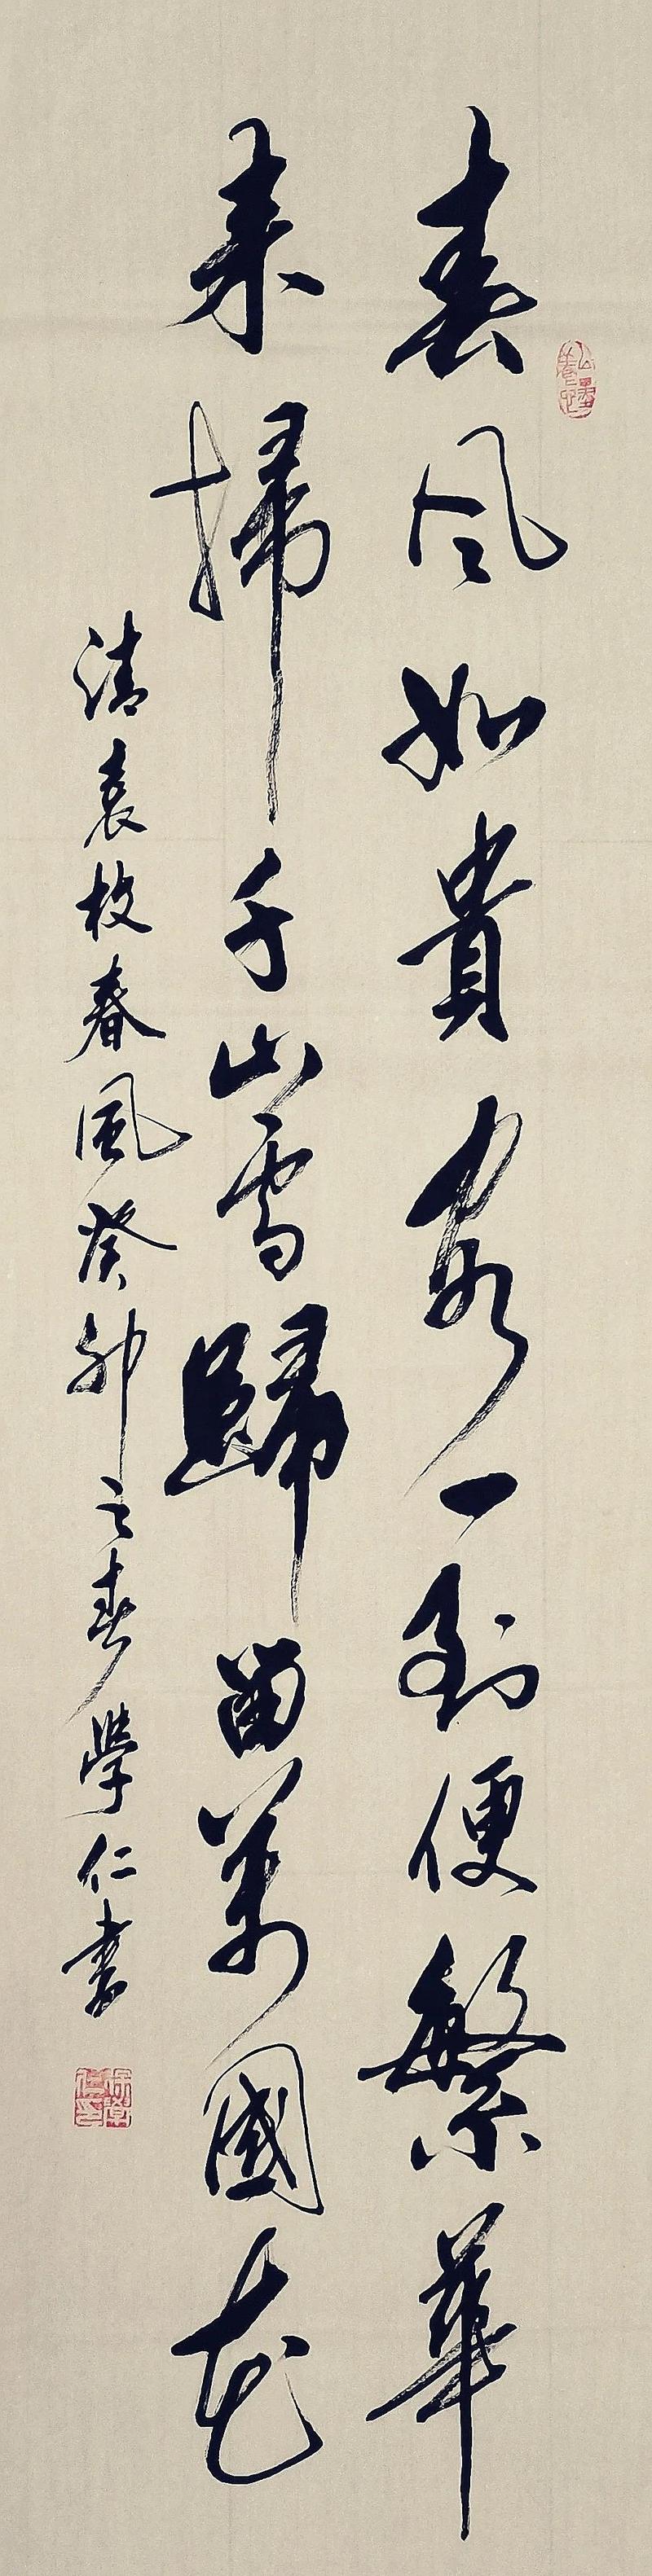 春风如貴客一到便繁華
来掃千山雪歸留萬國花
清袁枚春風癸卯之春學仁書